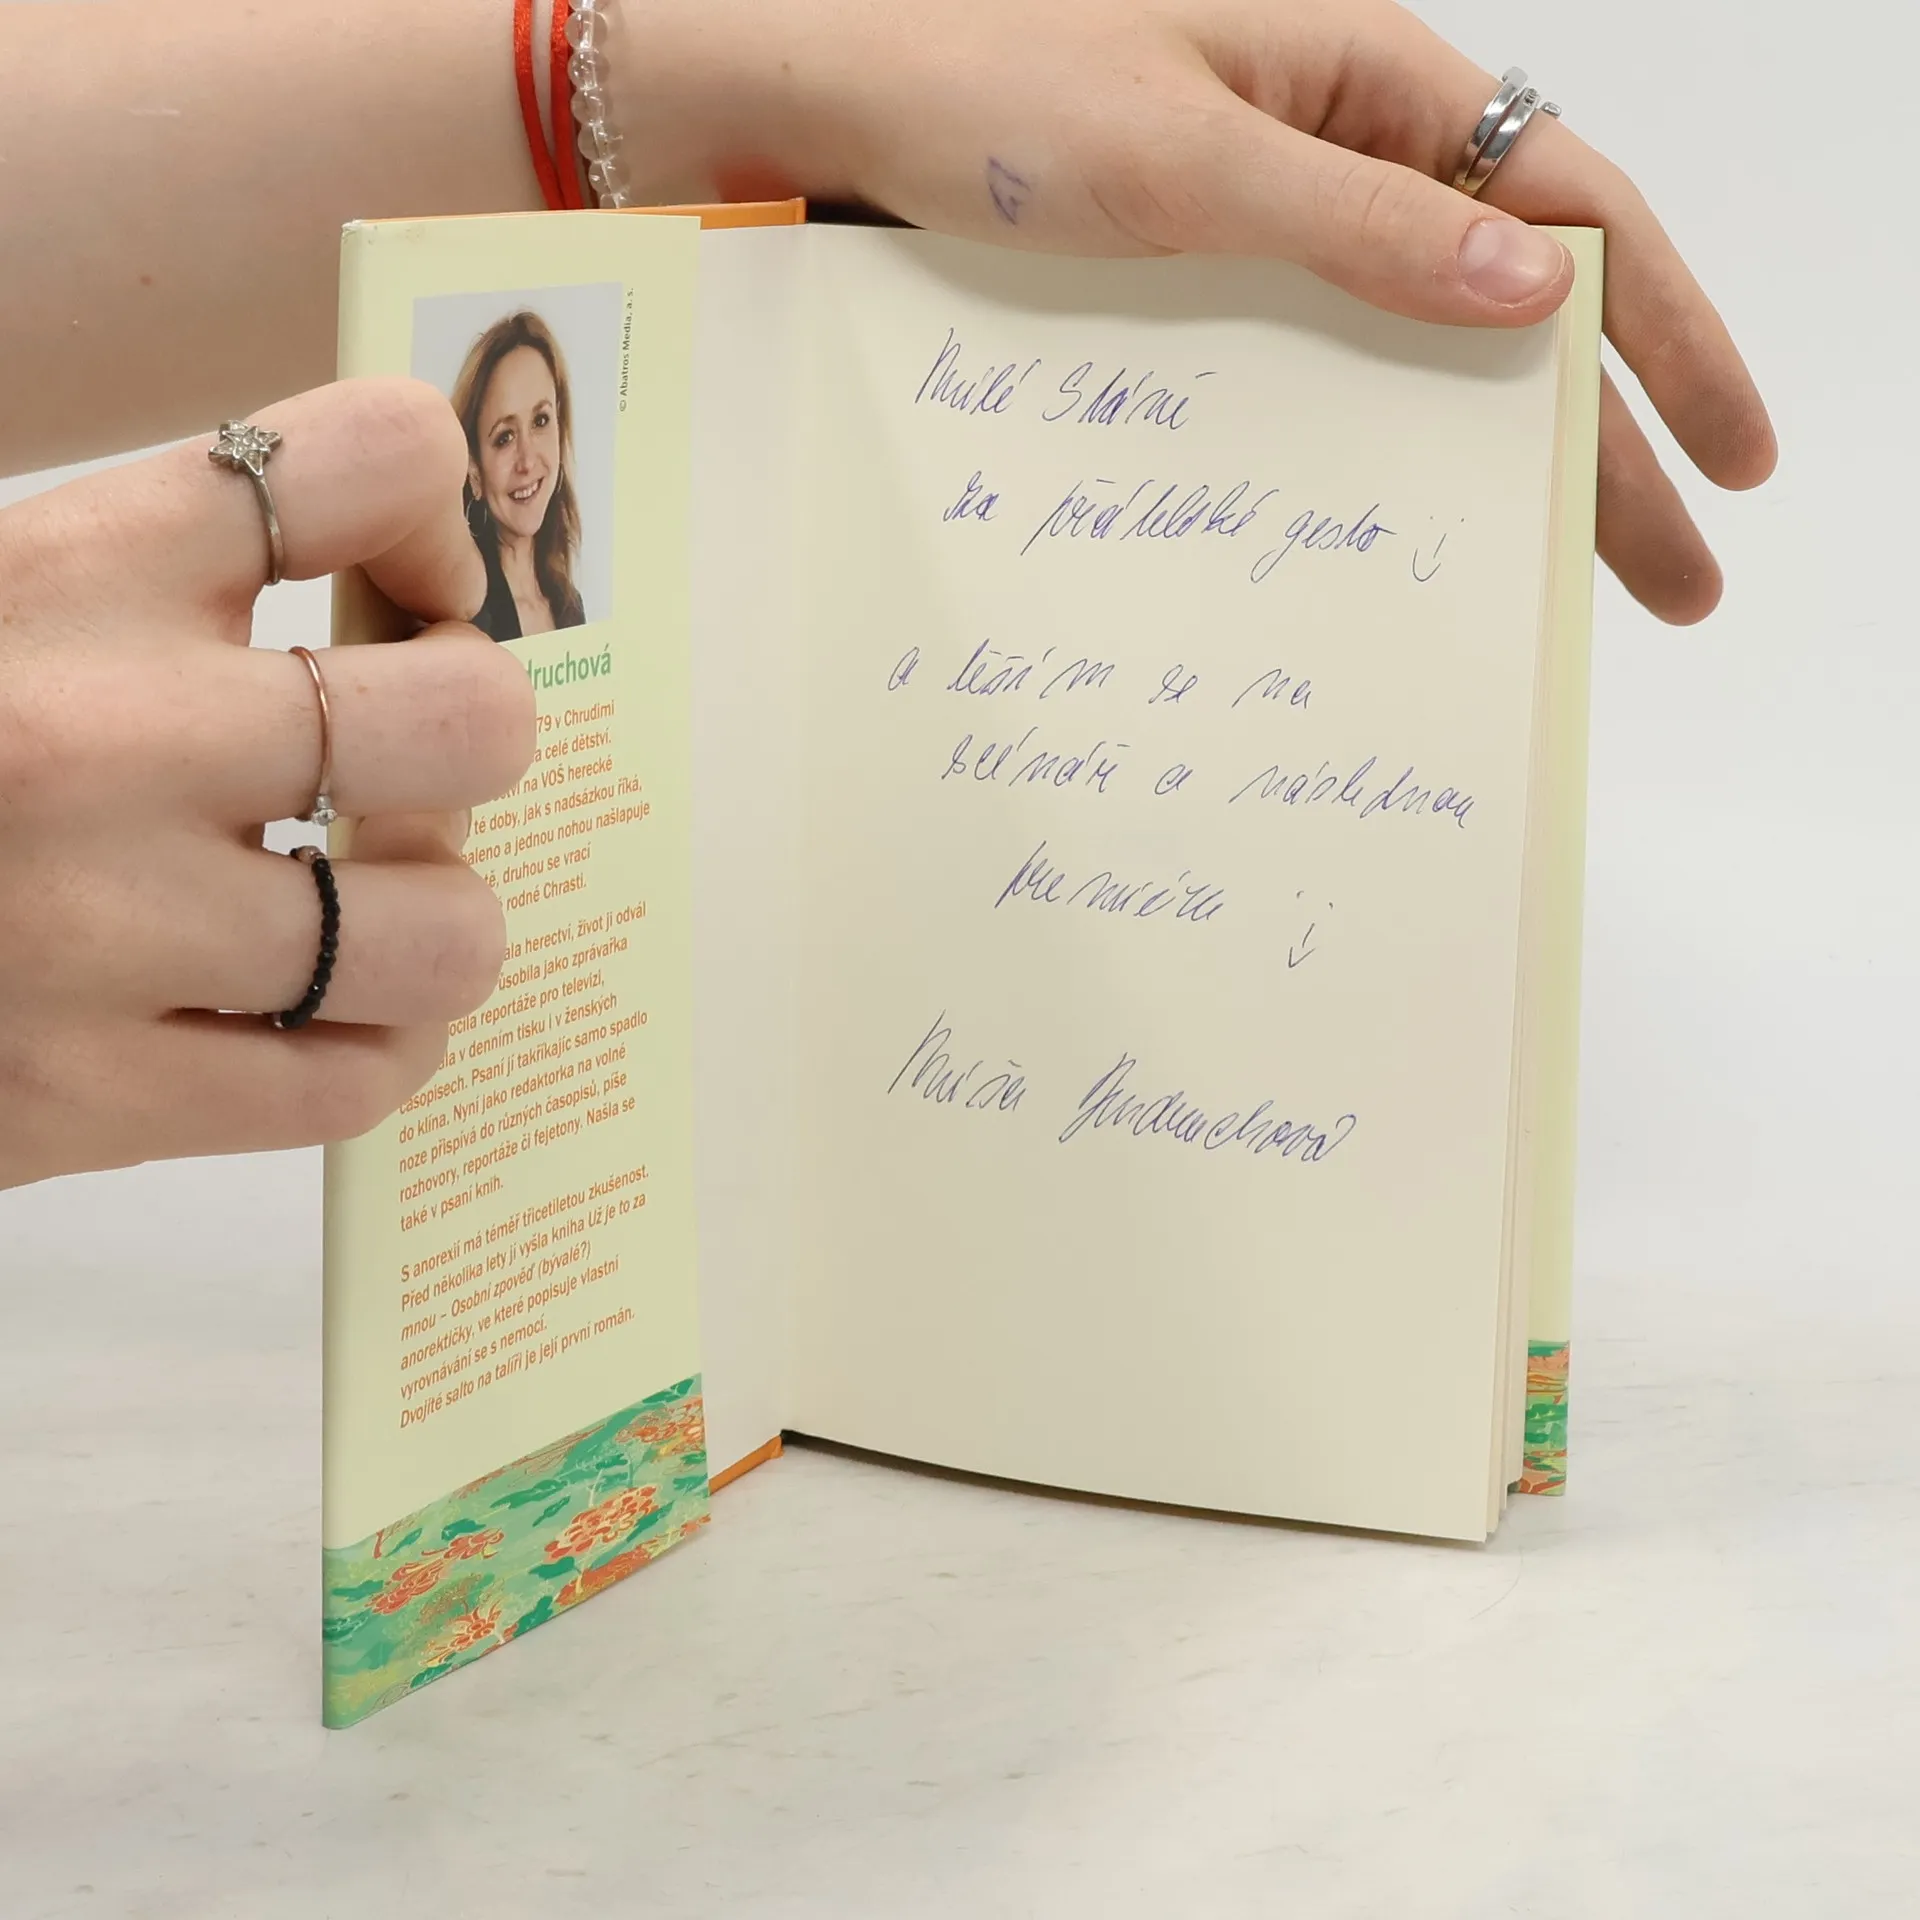 © Albatros Media, a. s.
druchová
79 v Chrudimi
a celé dětství.
ctví na VOŠ herecké
té doby, jak s nadsázkou říká,
baleno a jednou nohou našlapuje
tě, druhou se vrací
rodné Chrasti.
ala herectví, život ji odvál
ůsobila jako zprávařka
očila reportáže pro televizi,
ala v denním tisku i v ženských
časopisech. Psaní jí takříkajíc samo spadlo
do klína. Nyní jako redaktorka na volné
noze přispívá do různých časopisů, píše
rozhovory, reportáže či fejetony. Našla se
také v psaní knih.
S anorexií má téměř třicetiletou zkušenost.
Před několika lety jí vyšla kniha Už je to za
mnou – Osobní zpověď (bývalé?)
anorektičky, ve které popisuje vlastní
vyrovnávání se s nemocí.
Dvojité salto na talíři je její první román.
Milé Stáně
za přátelské gesto
a těším se na
scénář a následnou
premiéru
Míša Jindruchová